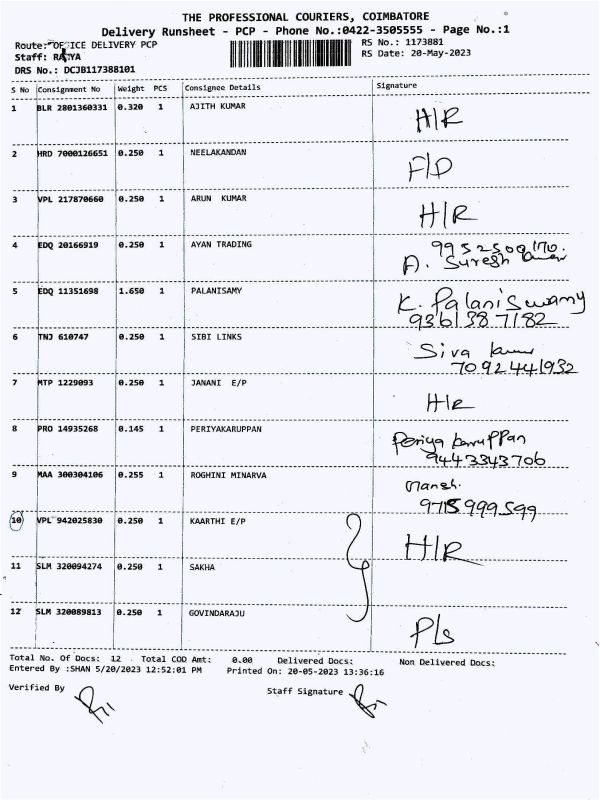 THE PROFESSIONAL COURIERS, COIMBATORE
Delivery Runsheet - PCP - Phone No.:0422-3505555 - Page No.:1
Route: OFFICE DELIVERY PCP
RS No.: 1173881
Staff: RAJYA
RS Date: 20-May-2023
DRS No.: DCJB117388101
S No Consignment No Weight PCS Consignee Details Signature
1 BLR 2801360331 0.320 1 AJITH KUMAR H/R
2 HRD 7000126651 0.250 1 NEELAKANDAN F/D
3 VPL 217870660 0.250 1 ARUN KUMAR H/R
4 EDQ 20166919 0.250 1 AYAN TRADING 9952500170.
A. Suresh Kumar
5 EDQ 11351698 1.650 1 PALANISAMY K. Palaniswamy
9361387182
6 TNJ 610747 0.250 1 SIBI LINKS Siva Kumar
7092441932
7 MTP 1229093 0.250 1 JANANI E/P H/R
8 PRO 14935268 0.145 1 PERIYAKARUPPAN Periya Karuppan
9443343706
9 MAA 300304106 0.255 1 ROGHINI MINARVA
9715999599
10 VPL 942025830 0.250 1 KAARTHI E/P H/R
11 SLM 320094274 0.250 1 SAKHA
12 SLM 320089813 0.250 1 GOVINDARAJU P/s
Total No. Of Docs: 12 Total COD Amt: 0.00 Delivered Docs: Non Delivered Docs:
Entered By :SHAN 5/20/2023 12:52:01 PM Printed On: 20-05-2023 13:36:16
Verified By Staff Signature